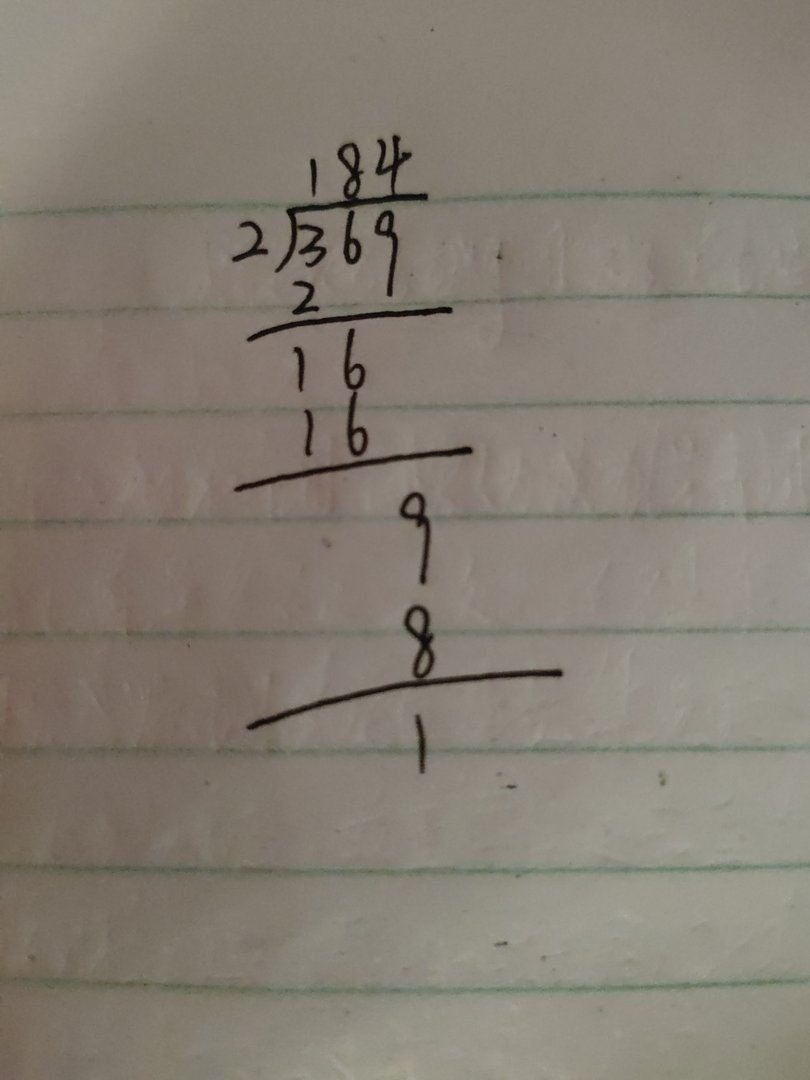 184
2)369
2
16
16
9
8
1